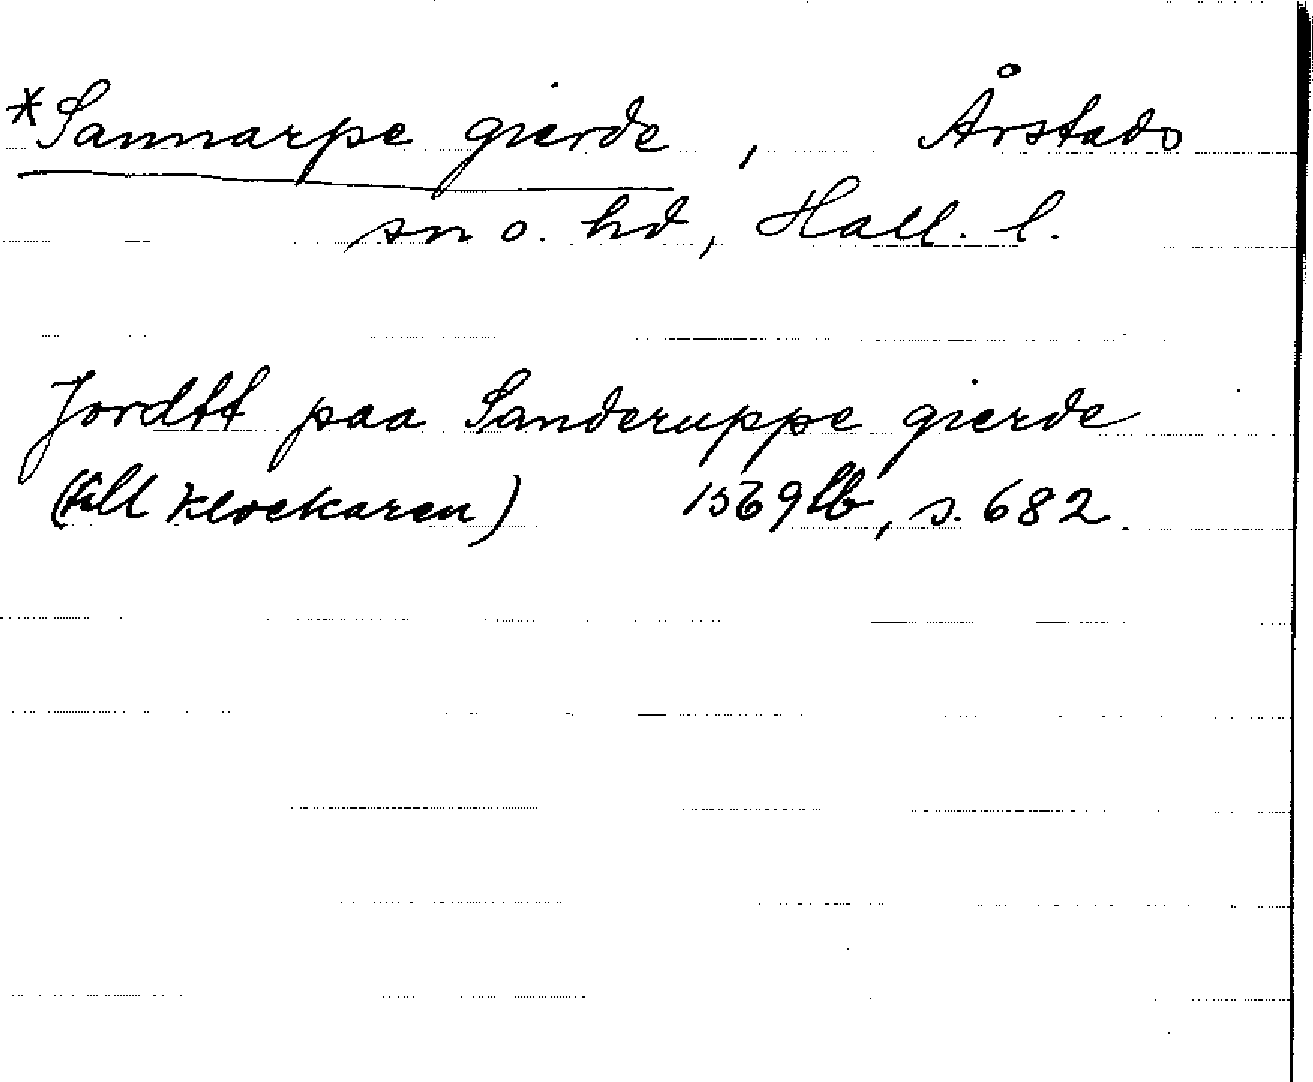 *Sannarpe gierde, Årstads
sn o. hd, Hall. l.
Jordtt paa Sanderuppe gierde
(till klockaren) 1569 lb, s. 682.